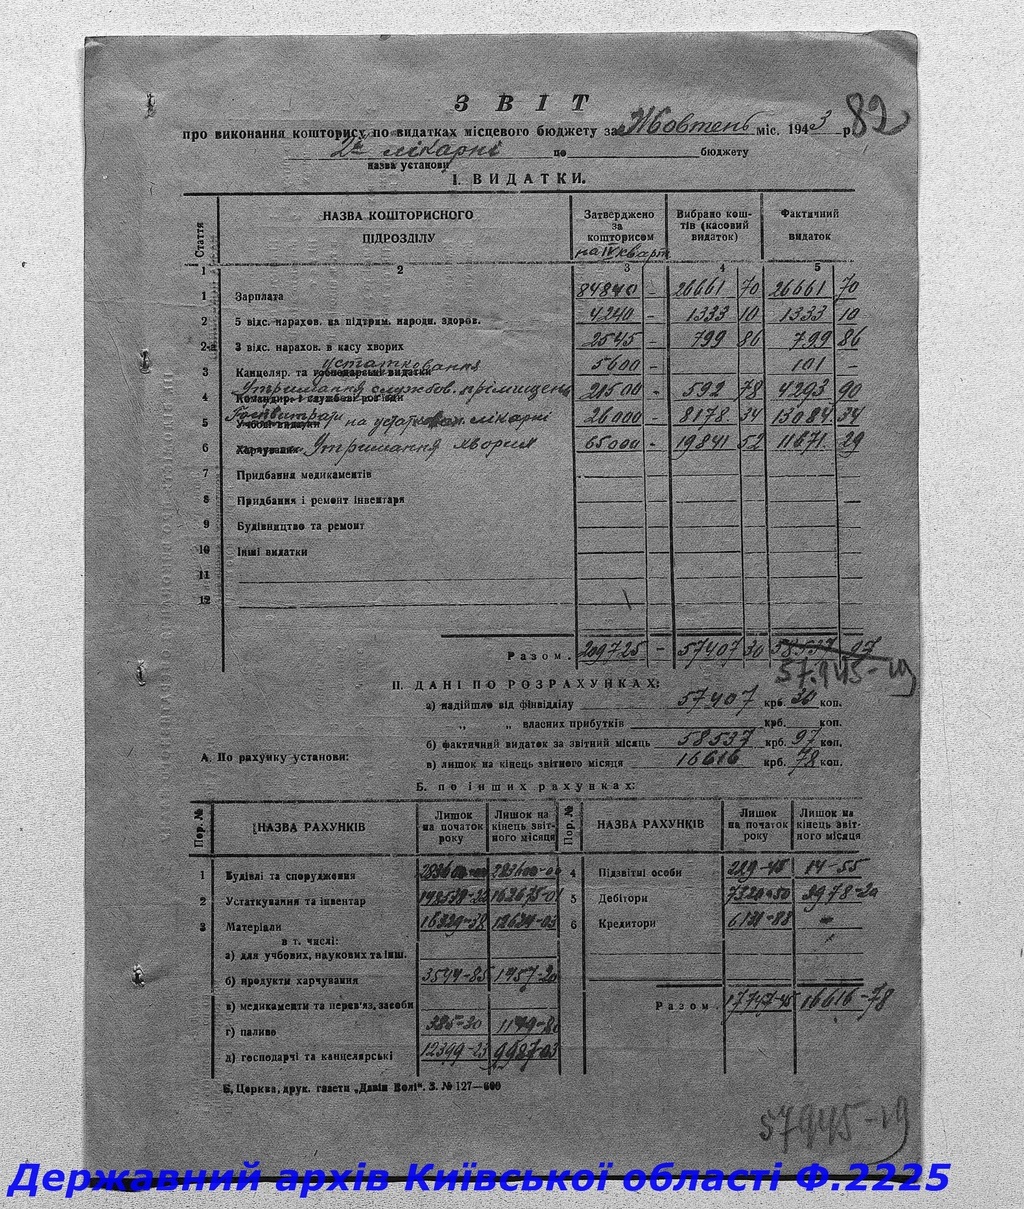 ЗВІТ
82
про виконання кошторису по видатках місцевого бюджету за Жовтень міс. 1943 р.
2ї лікарні по бюджету
назва установи
І. ВИДАТКИ.
Стаття НАЗВА КОШТОРИСНОГО ПІДРОЗДІЛУ Затверджено за кошторисом на IV кварт Вибрано коштів (касовий видаток) Фактичний видаток
1 2 3 4 5
1 Зарплата 84840 - 26661 70 26661 70
2 5 відс. нарахов. на підтрим. народн. здоров. 4240 - 1333 10 1333 10
2-а 3 відс. нарахов. в касу хворих 2545 - 799 86 799 86
устатковання
3 Канцеляр. та господарські видатки 5600 - 101 -
Утримання службов. приміщень
4 Командир. і службові роз'їзди 21500 - 592 78 4293 90
Госпвитрати на лікарні
5 Учбові видатки 26000 - 8178 34 13084 34
6 Харчування Утримання хворих 65000 - 19841 52 11671 29
7 Придбання медикаментів
8 Придбання і ремонт інвентаря
9 Будівництво та ремонт
10 Інші видатки
11
12
Разом. 209725 - 57407 30 58537 97
57.945-19
ІІ. ДАНІ ПО РОЗРАХУНКАХ:
а) надійшло від фінвідділу 57407 крб. 30 коп.
„ „ власних прибутків крб. коп.
б) фактичний видаток за звітний місяць 58537 крб. 97 коп.
А. По рахунку установи:
в) лишок на кінець звітного місяця 16616 крб. 78 коп.
Б. по інших рахунках:
Пор. № НАЗВА РАХУНКІВ Лишок на початок року Лишок на кінець звітного місяця Пор. № НАЗВА РАХУНКІВ Лишок на початок року Лишок на кінець звітного місяця
1 Будівлі та спорудження 283600-00 283600-00 4 Підзвітні особи 229-45 14-55
2 Устаткування та інвентар 163675-01 5 Дебітори 7320-50 3978-20
3 Матеріали 16329-38 12624-03 6 Кредитори 6131-88 -
в т. числі:
а) для учбових, наукових та інш.
б) продукти харчування 3544-85 1457-20
в) медикаменти та перев'яз. засоби
Разом. 17747-45 16616-78
г) паливо 385-30 1179-80
д) господарчі та канцелярські 12399-23 9987-03
Б. Церква, друк. газети „Дзвін Волі". З. № 127—600
57945-19
Державний архів Київської області Ф.2225